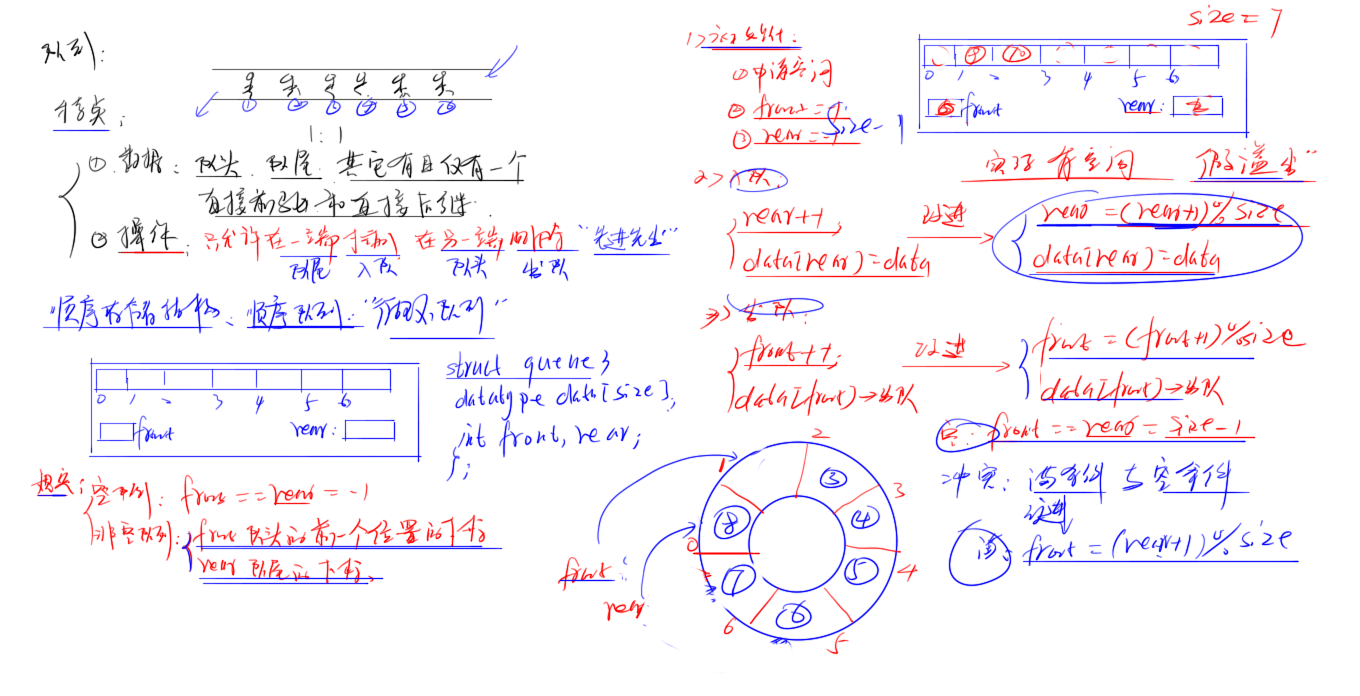 队列:
① ② ③ ④ ⑤ ⑥
特点:
1:1
① 数据: 队头、队尾 其它有且仅有一个
直接前驱和直接后继.
② 操作: 只允许在一端插入 在另一端删除 "先进先出"
队尾 入队 队头 出队
顺序存储结构、顺序队列:
0 1 2 3 4 5 6
front rear:
struct queue {
datatype data[size];
int front, rear;
};
规定:
空队列: front == rear = -1
非空队列: front 队头的前一个位置的下标
rear 队尾的下标.
size = 7
1> 初始化:
① 申请空间
② front = -1
③ rear = -1
size-1
0 1 2 3 4 5 6
front rear:
实际有空间 "假溢出"
2> 入队.
rear++,
data[rear]=data
改进
rear =(rear+1)%size
data[rear]=data
3> 出队.
front++;
data[front]→出队
改进
front =(front+1)%size
data[front]→出队
空: front == rear = size-1
冲突: 满条件与空条件
改进
满: front = (rear+1)%size
0 1 2 3 4 5 6
③ ④ ⑤ ⑥ ⑦ ⑧
front:
rear